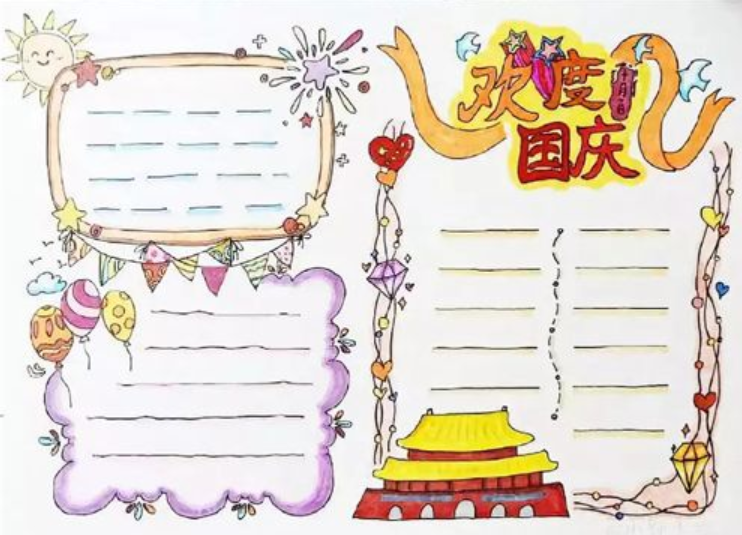 欢度
十月一日
国庆